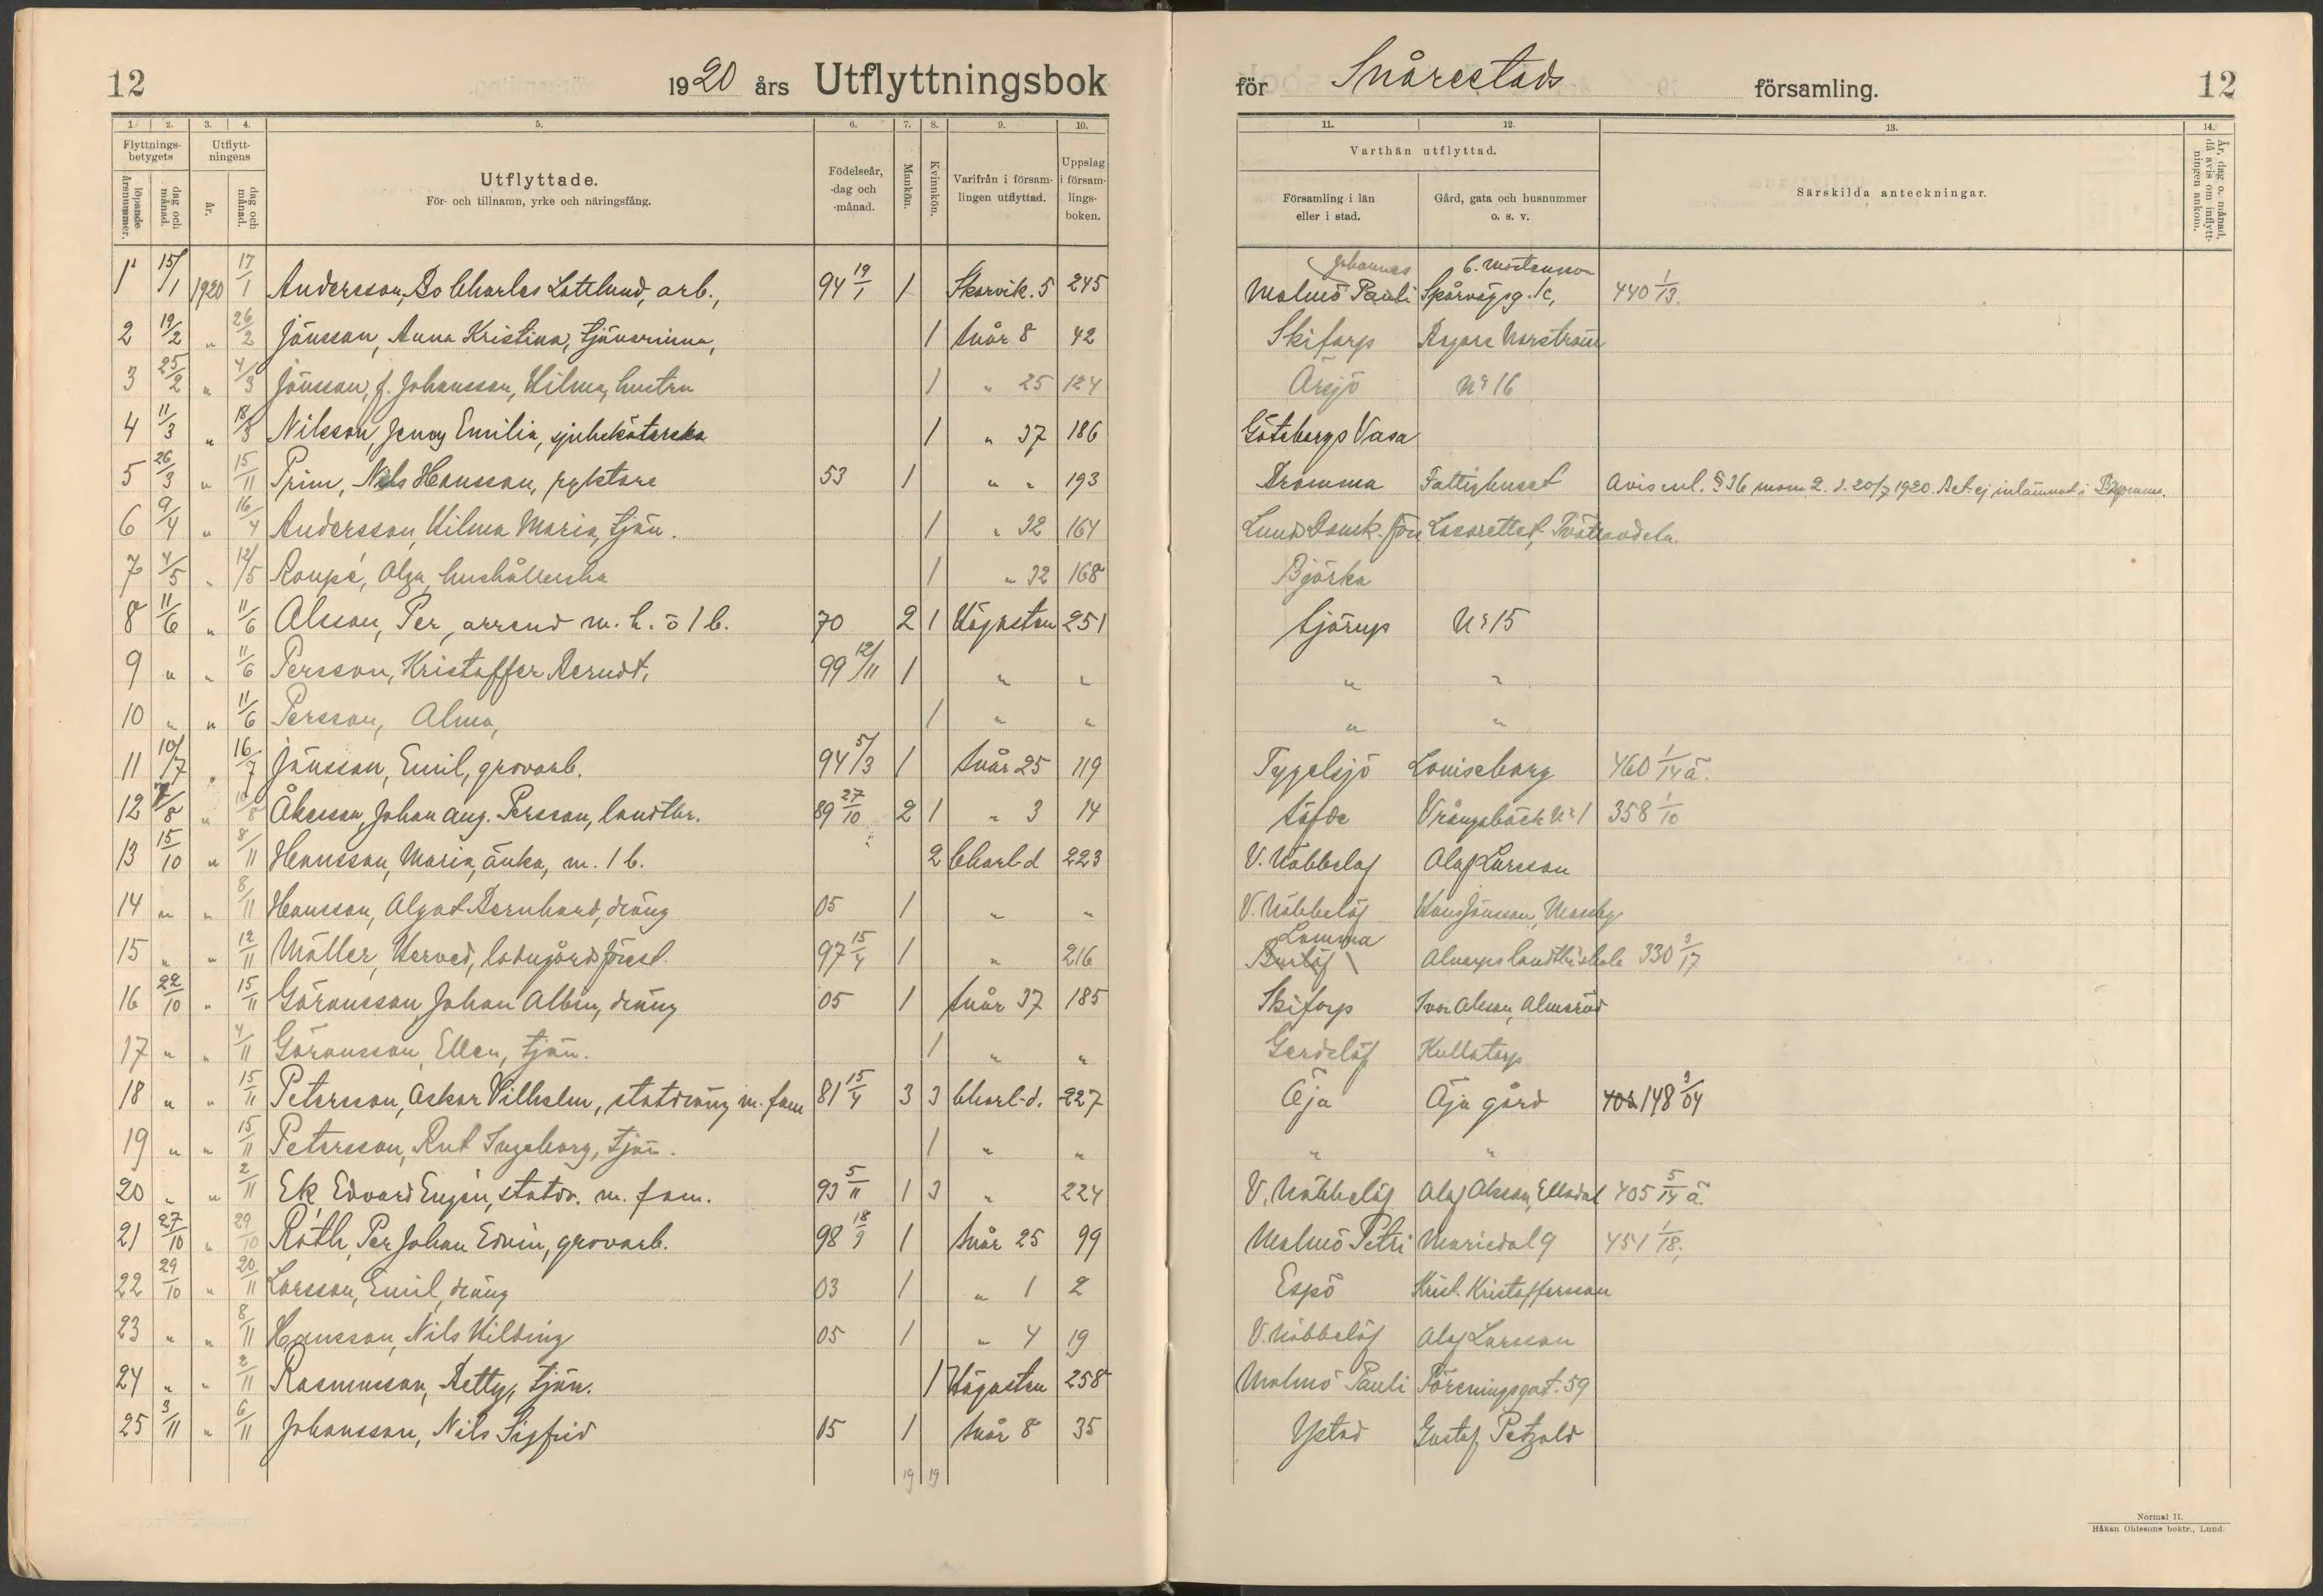 12
1920 års Utflyttningsbok
för Snårestads församling.
12
1. 2. 3. 4. 5. 6. 7. 8. 9. 10.
11. 12. 13. 14.
Flyttnings-betygets
löpande årsnummer.
dag och månad.
Utflytt-ningens
år.
dag och månad.
Utflyttade.
För- och tillnamn, yrke och näringsfång.
Födelseår, -dag och -månad.
Mankön.
Kvinnkön.
Varifrån i försam-lingen utflyttad.
Uppslag i försam-lings-boken.
Varthän utflyttad.
Församling i län eller i stad.
Gård, gata och husnummer o. s. v.
Särskilda anteckningar.
År, dag o. månad, då avis om inflytt-ningen ankom.
1 15/1 1920 17/1 Andersson, Bo Charles Lotelund, arb., 94 19/1 1 Skarvik. 5 245 Malmö Johannes Pauli Spårvägsg. 1c, C. Mårtensson 440 1/13.
2 19/2 " 26/2 Jönsson, Anna Kristina, tjänarinna, 1 Snår 8 42 Skifarp
3 25/2 " 4/3 Jönsson, f. Johansson, Hilma, hustru 1 " 25 124 Arsjö No 16
4 11/3 " 18/3 Nilsson, Jenny Emilia, sjuksköterska 1 " 37 186 Göteborgs Vasa
5 26/3 " 15/11 Prim, Nils Hansson, ryktare 53 1 " " 193 Bromma Fattighuset Avis enl. § 36 mom 2. d. 20/7 1920. Bet. ej inlämnat i Bromma.
6 9/4 " 16/4 Andersson, Hilma Maria, tjän. 1 " 32 164 Lunds Domk. förs Lasarettet, Tvättavdeln.
7 4/5 " 12/5 Roupé, Olga, hushållerska 1 " 32 168 Björka
8 11/6 " 11/6 Olsson, Per, arrend m. h. o 1 b. 70 2 1 Högasten 251 Sjörup No 15
9 " " 11/6 Persson, Kristoffer Berndt, 99 12/11 1 " " " "
10 " " 11/6 Persson, Alma, 1 " " " "
11 10/7 " 16/7 Jönsson, Emil, grovarb. 94 5/3 1 Snår 25 119 Tygelsjö Louiseborg 460 1/14 a.
12 7/8 " Åkesson, Johan Aug. Persson, landtbr. 89 27/10 2 1 " 3 14 Löfde Vrångabäck No 1 358 1/10
13 15/10 " 8/11 Hansson, Maria, änka, m. 1 b. 2 Charl-d 223 V. Nöbbelöf Olof Larsson
14 " " 8/11 Hansson, Algot Bernhard, dräng 05 1 " " V. Nöbbelöf Hans Jönsson, Mossby
15 " " 12/11 Möller, Herved, ladugårdsförest. 97 15/4 1 " 216 Burlöf Lomma Alnarps landtbr.skola 330 9/17
16 22/10 " 15/11 Göransson, Johan Albin, dräng 05 1 Snår 37 185 Skifarp Ivar Olsson, Almaröd
17 " " 4/11 Göransson, Ellen, tjän. 1 " " Gerdslöf Kullatorp
18 " " 15/11 Petersson, Oskar Vilhelm, statdräng m. fam 81 15/4 3 3 Charl-d. 227 Öja Öja gård 148 9/04
19 " " 15/11 Petersson, Rut Ingeborg, tjän. 1 " " " "
20 " " 2/11 Ek, Edvard Eugén, statdr. m. fam. 93 5/11 1 3 " 224 V. Nöbbelöf Olof Olsson, Ellsdal 405 5/14 a.
21 27/10 " 29/10 Roth, Per Johan Edvin, grovarb. 98 18/9 1 Snår 25 99 Malmö Petri Mariedal 9 451 1/18.
22 29/10 " 20/11 Larsson, Emil, dräng 03 1 " 1 2 Espö Krist. Kristoffersson
23 " " 8/11 Hansson, Nils Hilding 05 1 " 4 19 V. Nöbbelöf Olof Larsson
24 " " 2/11 Rasmusson, Betty, tjän. 1 Högasten 258 Malmö Pauli Föreningsgat. 59
25 3/11 " 6/11 Johansson, Nils Sigfrid 15 1 Snår 8 35 Ystad Gustaf Petzold
19 19
Normal II.
Håkan Ohlssons boktr., Lund.